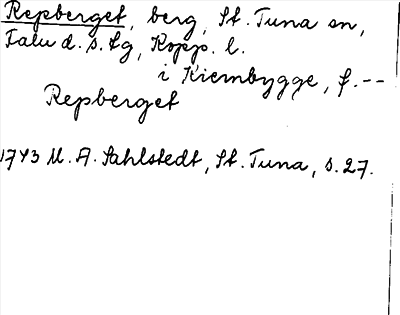 Repberget, berg, St. Tuna sn,
Falu d. s. tg, Kopp. l.
i Kiernbygge, f.--
Repberget
1743 M. A. Sahlstedt, St. Tuna, s. 27.